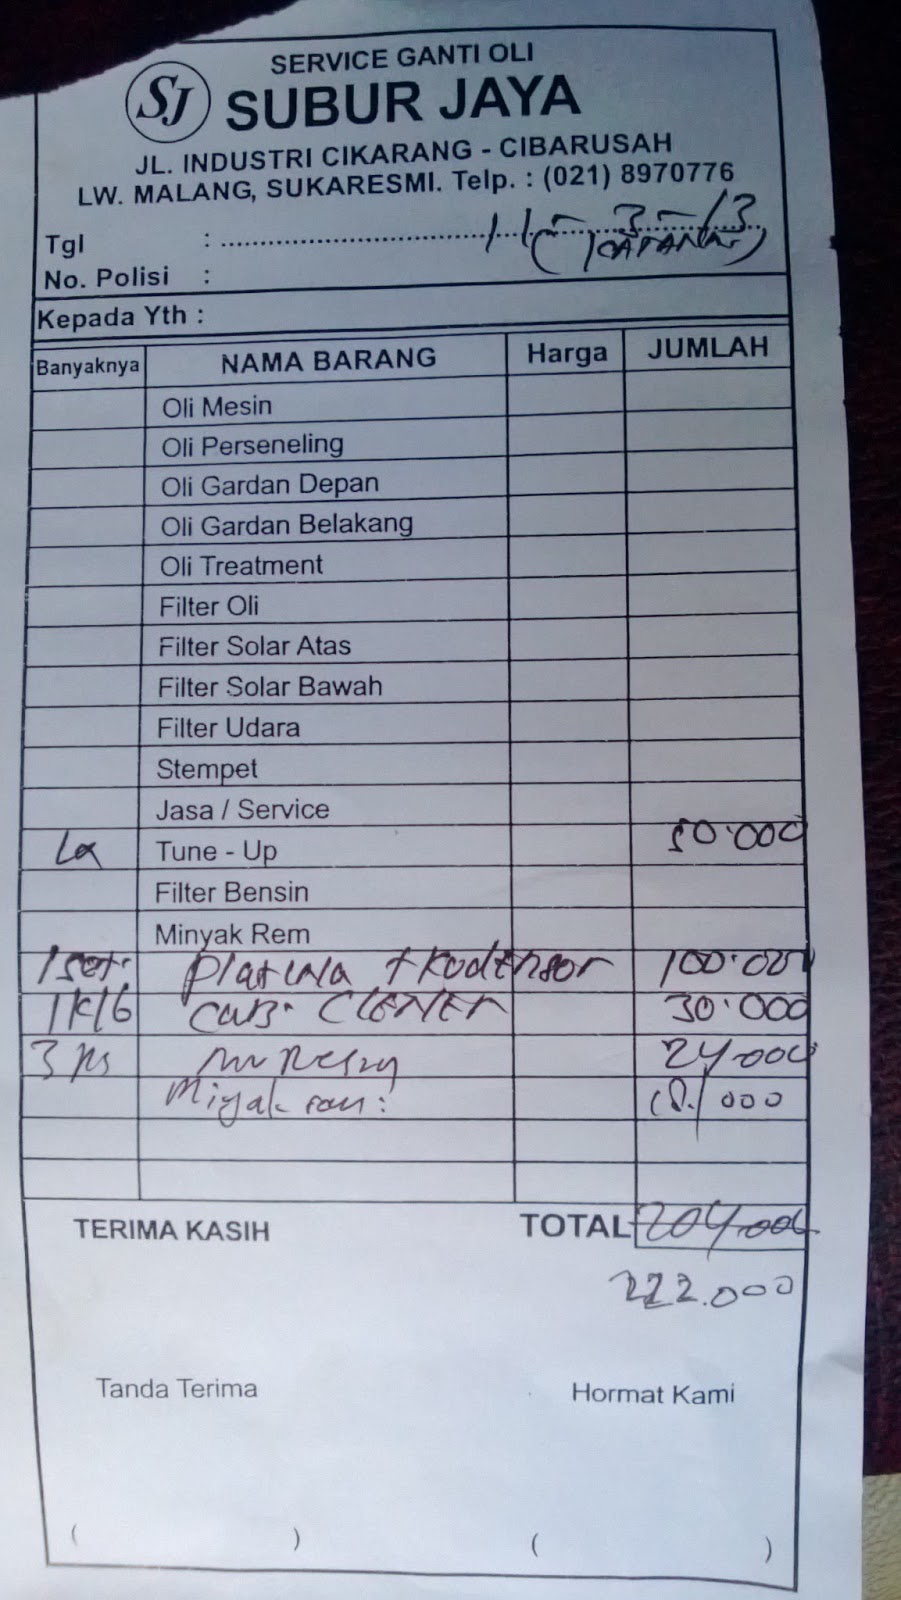 SERVICE GANTI OLI
SJ SUBUR JAYA
JL. INDUSTRI CIKARANG - CIBARUSAH
LW. MALANG, SUKARESMI. Telp. : (021) 8970776
Tgl : 11 - 3 - 13
No. Polisi :
Kepada Yth :
Banyaknya NAMA BARANG Harga JUMLAH
Oli Mesin
Oli Perseneling
Oli Gardan Depan
Oli Gardan Belakang
Oli Treatment
Filter Oli
Filter Solar Atas
Filter Solar Bawah
Filter Udara
Stempet
Jasa / Service
Tune - Up 50.000
Filter Bensin
Minyak Rem
1 set. Platina + Kodensor 100.000
CAB. CLENER 30.000
3 24.000
Miyak 18.000
TERIMA KASIH TOTAL 204.000
222.000
Tanda Terima Hormat Kami
( ) ( )